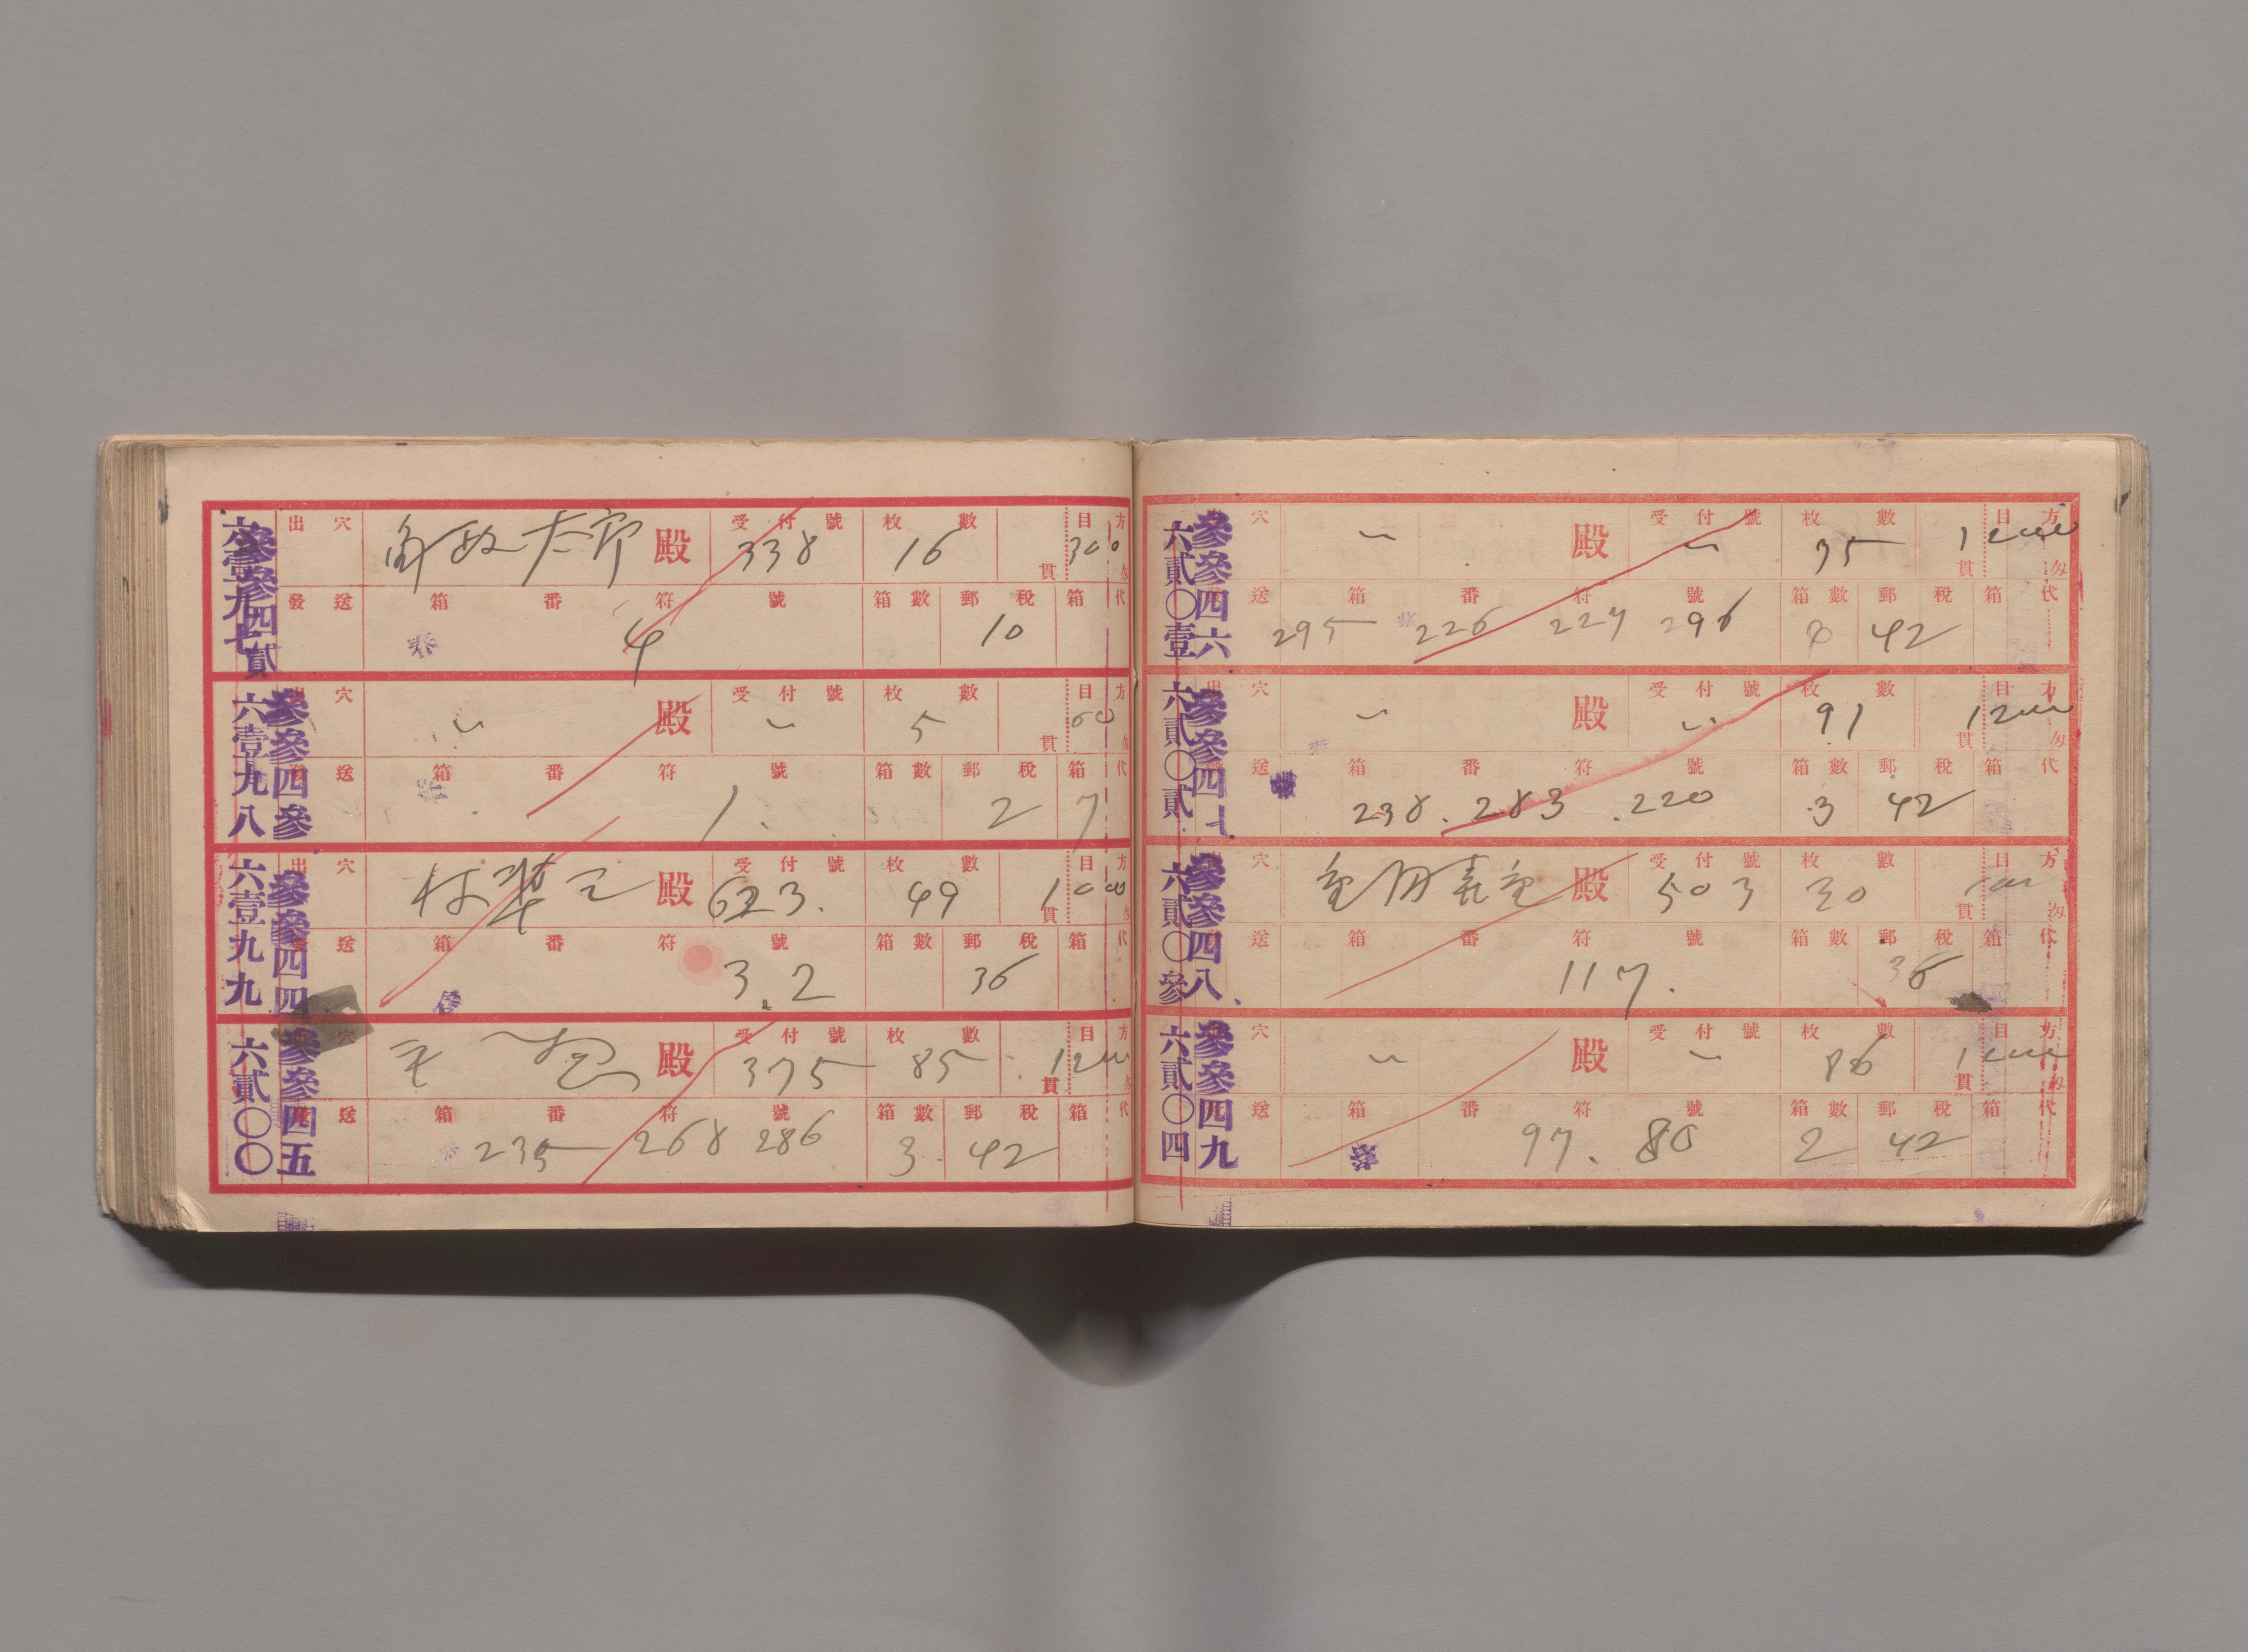 六壹九七
參參四貳
出穴 角政太郎 殿 受付號 338 枚數 16 貫 方目 300 匁
發送 箱番符號 4 箱數 郵稅 10 箱代
六壹九八
參參四參
出穴 〃 殿 受付號 〃 枚數 5 貫 方目 60 匁
發送 箱番符號 1. 箱數 郵稅 2 箱代 7
六壹九九
參參四四
出穴 殿 受付號 623. 枚數 49 貫 方目 1000 匁
發送 箱番符號 3.2 箱數 郵稅 36 箱代
六貳〇〇
參參四五
出穴 殿 受付號 375 枚數 85 貫 方目 1200 匁
發送 箱番符號 235 268 286 箱數 3 郵稅 42 箱代
六貳〇壹
參參四六
出穴 〃 殿 受付號 〃 枚數 35 貫 方目 匁
送 箱番符號 295 226 227 296 箱數 郵稅 42 箱代
六貳〇貳
參參四七
出穴 〃 殿 受付號 〃 枚數 91 貫 方目 1200 匁
送 箱番符號 238. 283 .220 箱數 3 郵稅 42 箱代
六貳〇參
參參四八
穴 殿 受付號 503 枚數 30 貫 方目 匁
送 箱番符號 117. 箱數 郵稅 36 箱代
六貳〇四
參參四九
穴 〃 殿 受付號 〃 枚數 86 貫 方目 匁
送 箱番符號 97. 80 箱數 2 郵稅 42 箱代